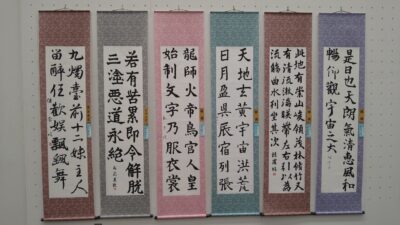 是日也天朗氣清惠風和
暢仰觀宇宙之大
此地有崇山峻領茂林脩竹又
有清流激湍映帶左右引以為
流觴曲水列坐其次
天地玄黃宇宙洪荒
日月盈昃辰宿列張
龍師火帝鳥官人皇
始制文字乃服衣裳
若有苦累即今解脱
三塗悪道永絶
九燭臺前十二姝主人
留醉任歡娯飄颻舞